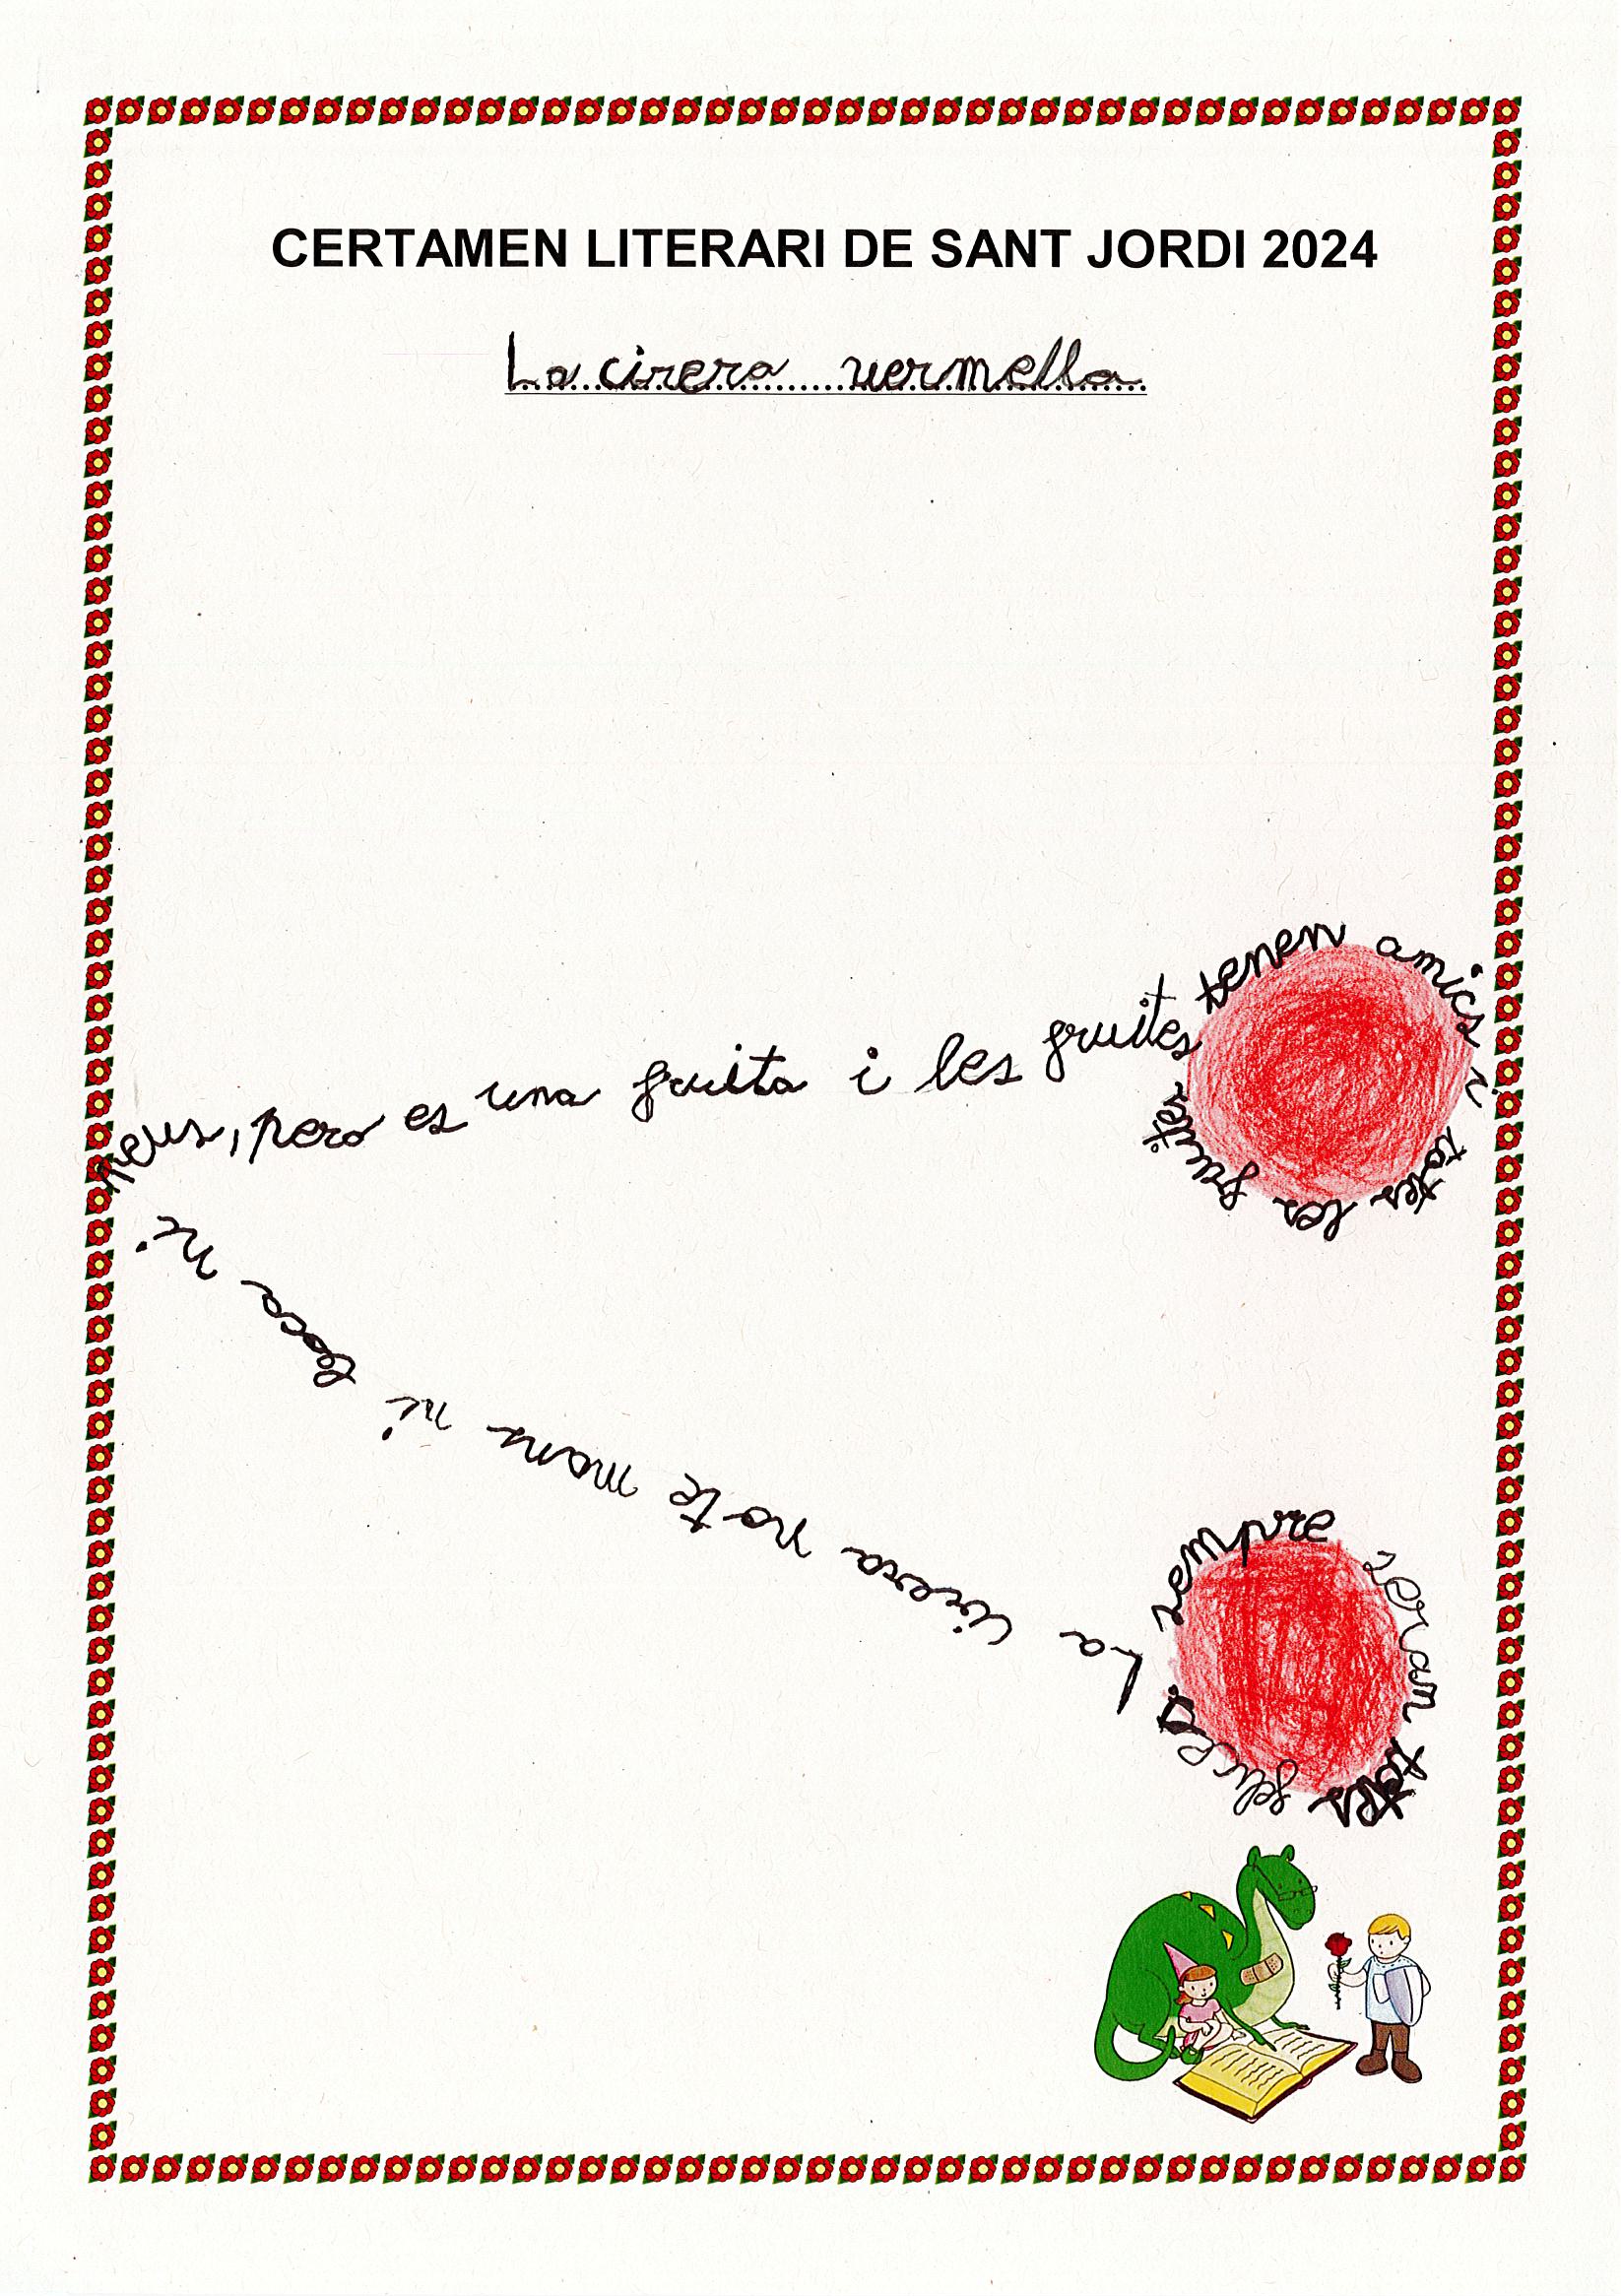 CERTAMEN LITERARI DE SANT JORDI 2024
La cirera vermella
La cirera no te mans ni boca ni
peus, pero es una fruita i les fruites
tenen amics i totes les fruites
sempre seran totes felices.